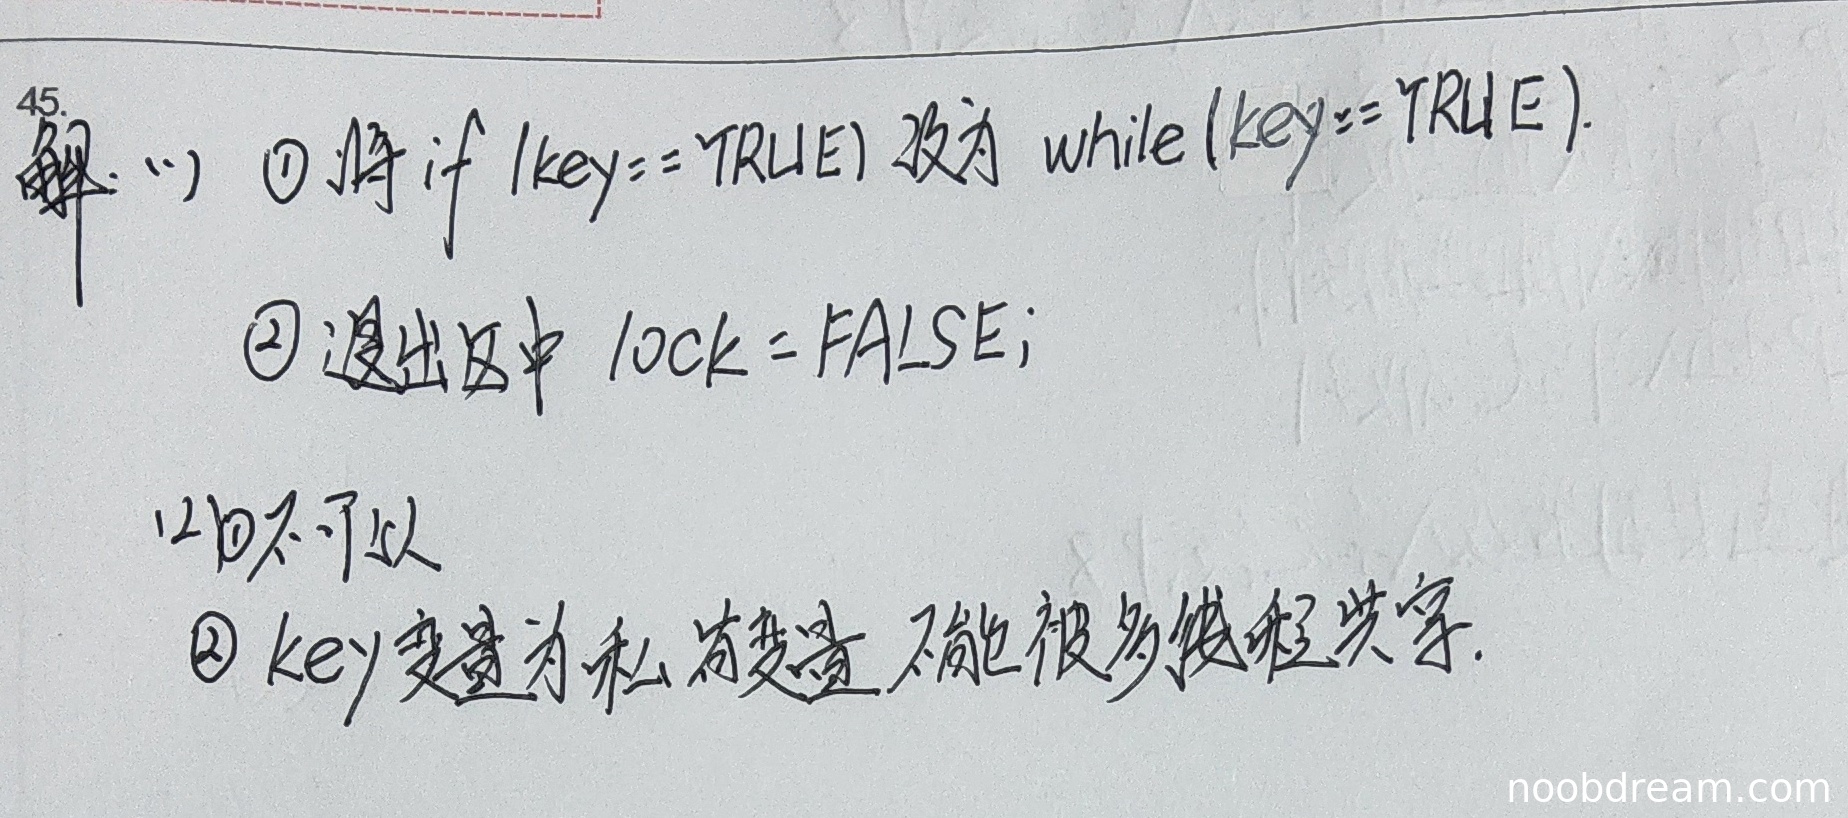 45.
解: (1) ① 将 if (key==TRUE) 改为 while(key==TRUE).
② 退出区中 lock=FALSE;
(2) ①不可以
② key变量为私有变量 不能被多线程共享.
noobdream.com